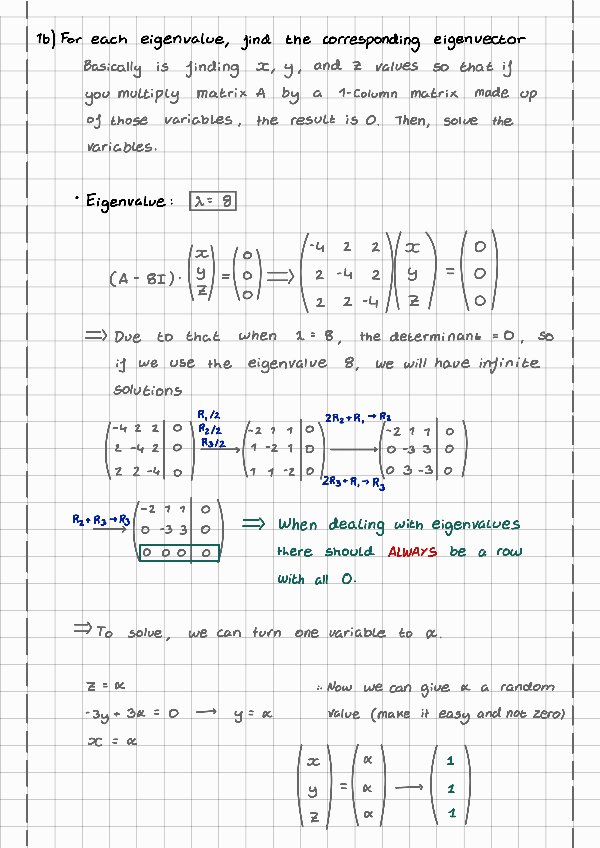 1b) For each eigenvalue, find the corresponding eigenvector
Basically is finding x, y, and z values so that if
you multiply matrix A by a 1-column matrix made up
of those variables, the result is 0. Then, solve the
variables.
• Eigenvalue: λ = 8
(A - 8I) · (x y z) = (0 0 0) ⟹ (-4 2 2 / 2 -4 2 / 2 2 -4) (x y z) = (0 0 0)
⟹ Due to that when λ = 8, the determinant = 0, so
if we use the eigenvalue 8, we will have infinite
solutions
R₁/2 2R₂ + R₁ → R₂
-4 2 2 | 0 R₂/2 -2 1 1 | 0 -2 1 1 | 0
2 -4 2 | 0 R₃/2 → 1 -2 1 | 0 → 0 -3 3 | 0
2 2 -4 | 0 1 1 -2 | 0 0 3 -3 | 0
2R₃ + R₁ → R₃
-2 1 1 | 0
R₂ + R₃ → R₃ → 0 -3 3 | 0 ⟹ When dealing with eigenvalues
0 0 0 | 0 there should ALWAYS be a row
with all 0.
⟹ To solve, we can turn one variable to α.
z = α ∴ Now we can give α a random
-3y + 3α = 0 → y = α value (make it easy and not zero)
x = α
(x y z) = (α α α) → (1 1 1)